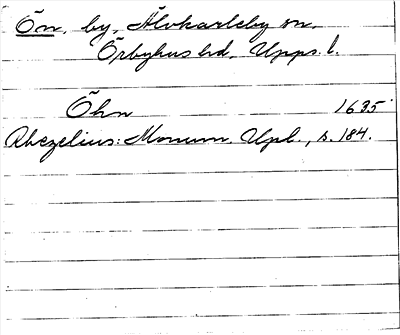 Ön, by, Älvkarleby sn,
Örbyhus hd, Upps. l.
Öhn 1635
Rhezelius: Monum. Upl., s. 184.